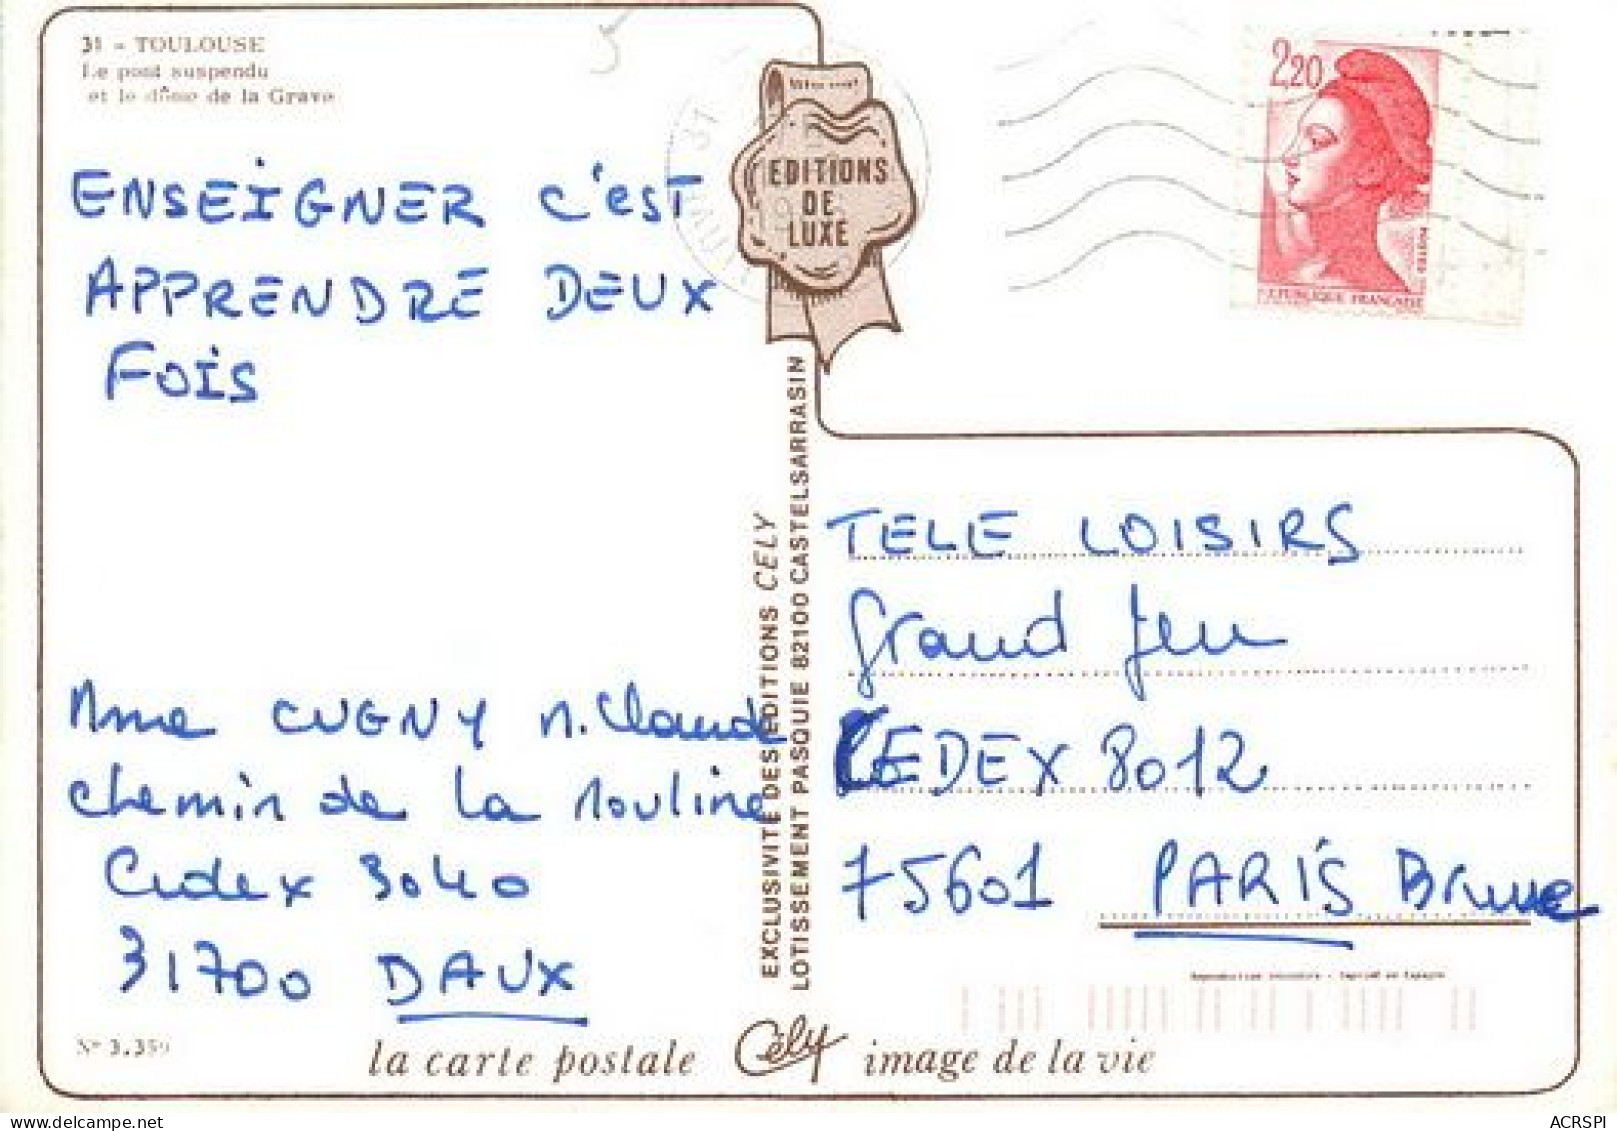 31 - TOULOUSE
Le pont suspendu
et le dôme de la Grave
ENSEIGNER C'EST
APPRENDRE DEUX
FOIS
Mme CUGNY M. Claude
chemin de la Mouline
Cedex 3040
31700 DAUX
N° 3.359
EDITIONS
DE
LUXE
EXCLUSIVITE DES EDITIONS CELY
LOTISSEMENT PASQUIE 82100 CASTELSARRASIN
2,20
POSTES
REPUBLIQUE FRANÇAISE
TELE LOISIRS
Grand Jeu
CEDEX 8012
75601 PARIS Brune
Reproduction interdite - Imprimé en Espagne
la carte postale Cély image de la vie
ACRSPI